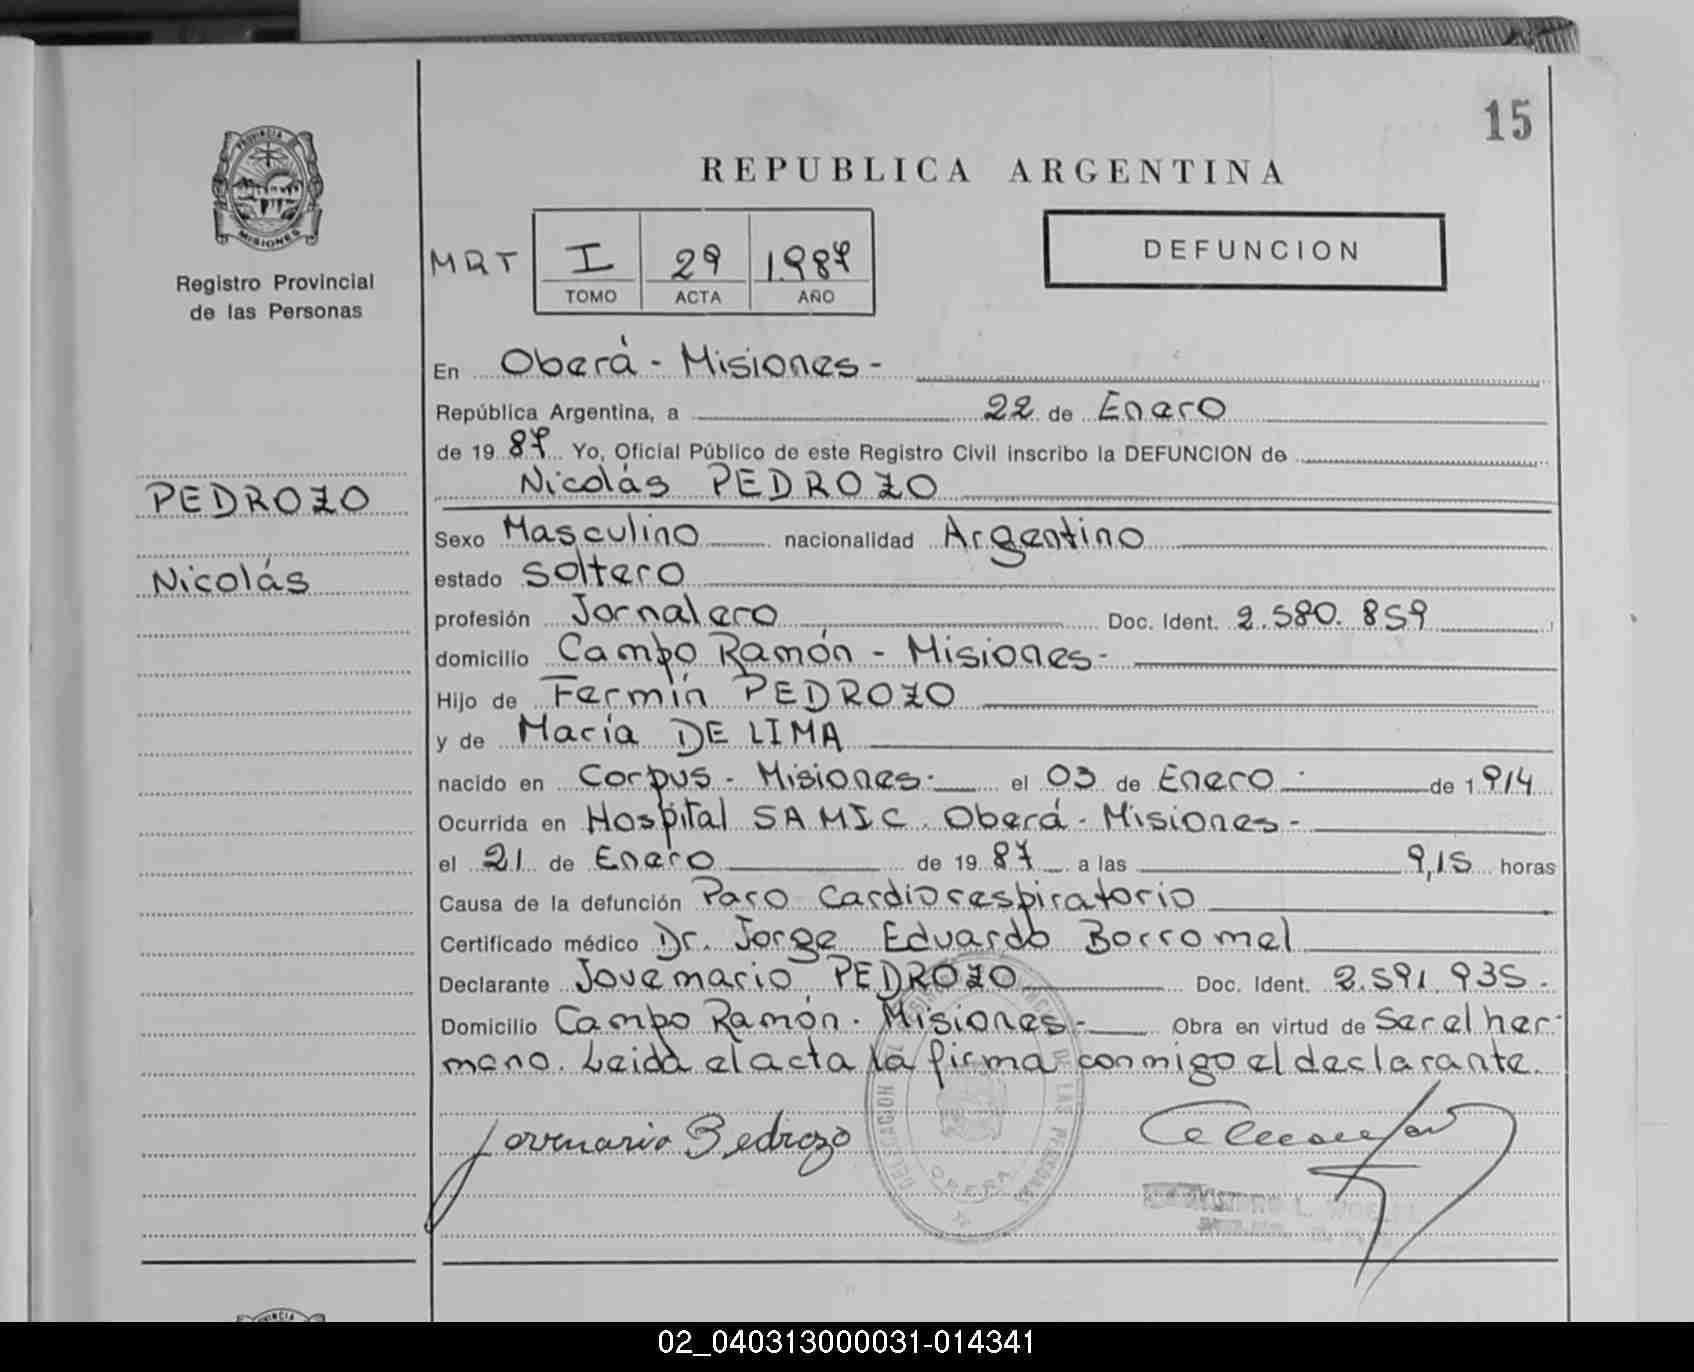 15
PROVINCIA
MISIONES
Registro Provincial
de las Personas
REPUBLICA ARGENTINA
MRT I 29 1987
TOMO ACTA AÑO
DEFUNCION
En Oberá - Misiones -
República Argentina, a 22 de Enero
de 1987 Yo, Oficial Público de este Registro Civil inscribo la DEFUNCION de
Nicolás PEDROZO
PEDROZO
Nicolás
Sexo Masculino nacionalidad Argentino
estado soltero
profesión Jornalero Doc. Ident. 2.580.859
domicilio Campo Ramón - Misiones -
Hijo de Fermín PEDROZO
y de María DE LIMA
nacido en Corpus - Misiones - el 03 de Enero - de 1914
Ocurrida en Hospital SAMIC. Oberá - Misiones -
el 21 de Enero de 1987 a las 9,15 horas
Causa de la defunción Paro Cardiorespiratorio
Certificado médico Dr. Jorge Eduardo Borromel
Declarante Jovemario PEDROZO Doc. Ident. 2.591.935 -
Domicilio Campo Ramón - Misiones - Obra en virtud de ser el her-
mano. Leida el acta la firma conmigo el declarante.
DELEGACION DE LAS PERSONAS
OBERA
Jovemario Pedrozo
PROVINCIA
02_040313000031-014341